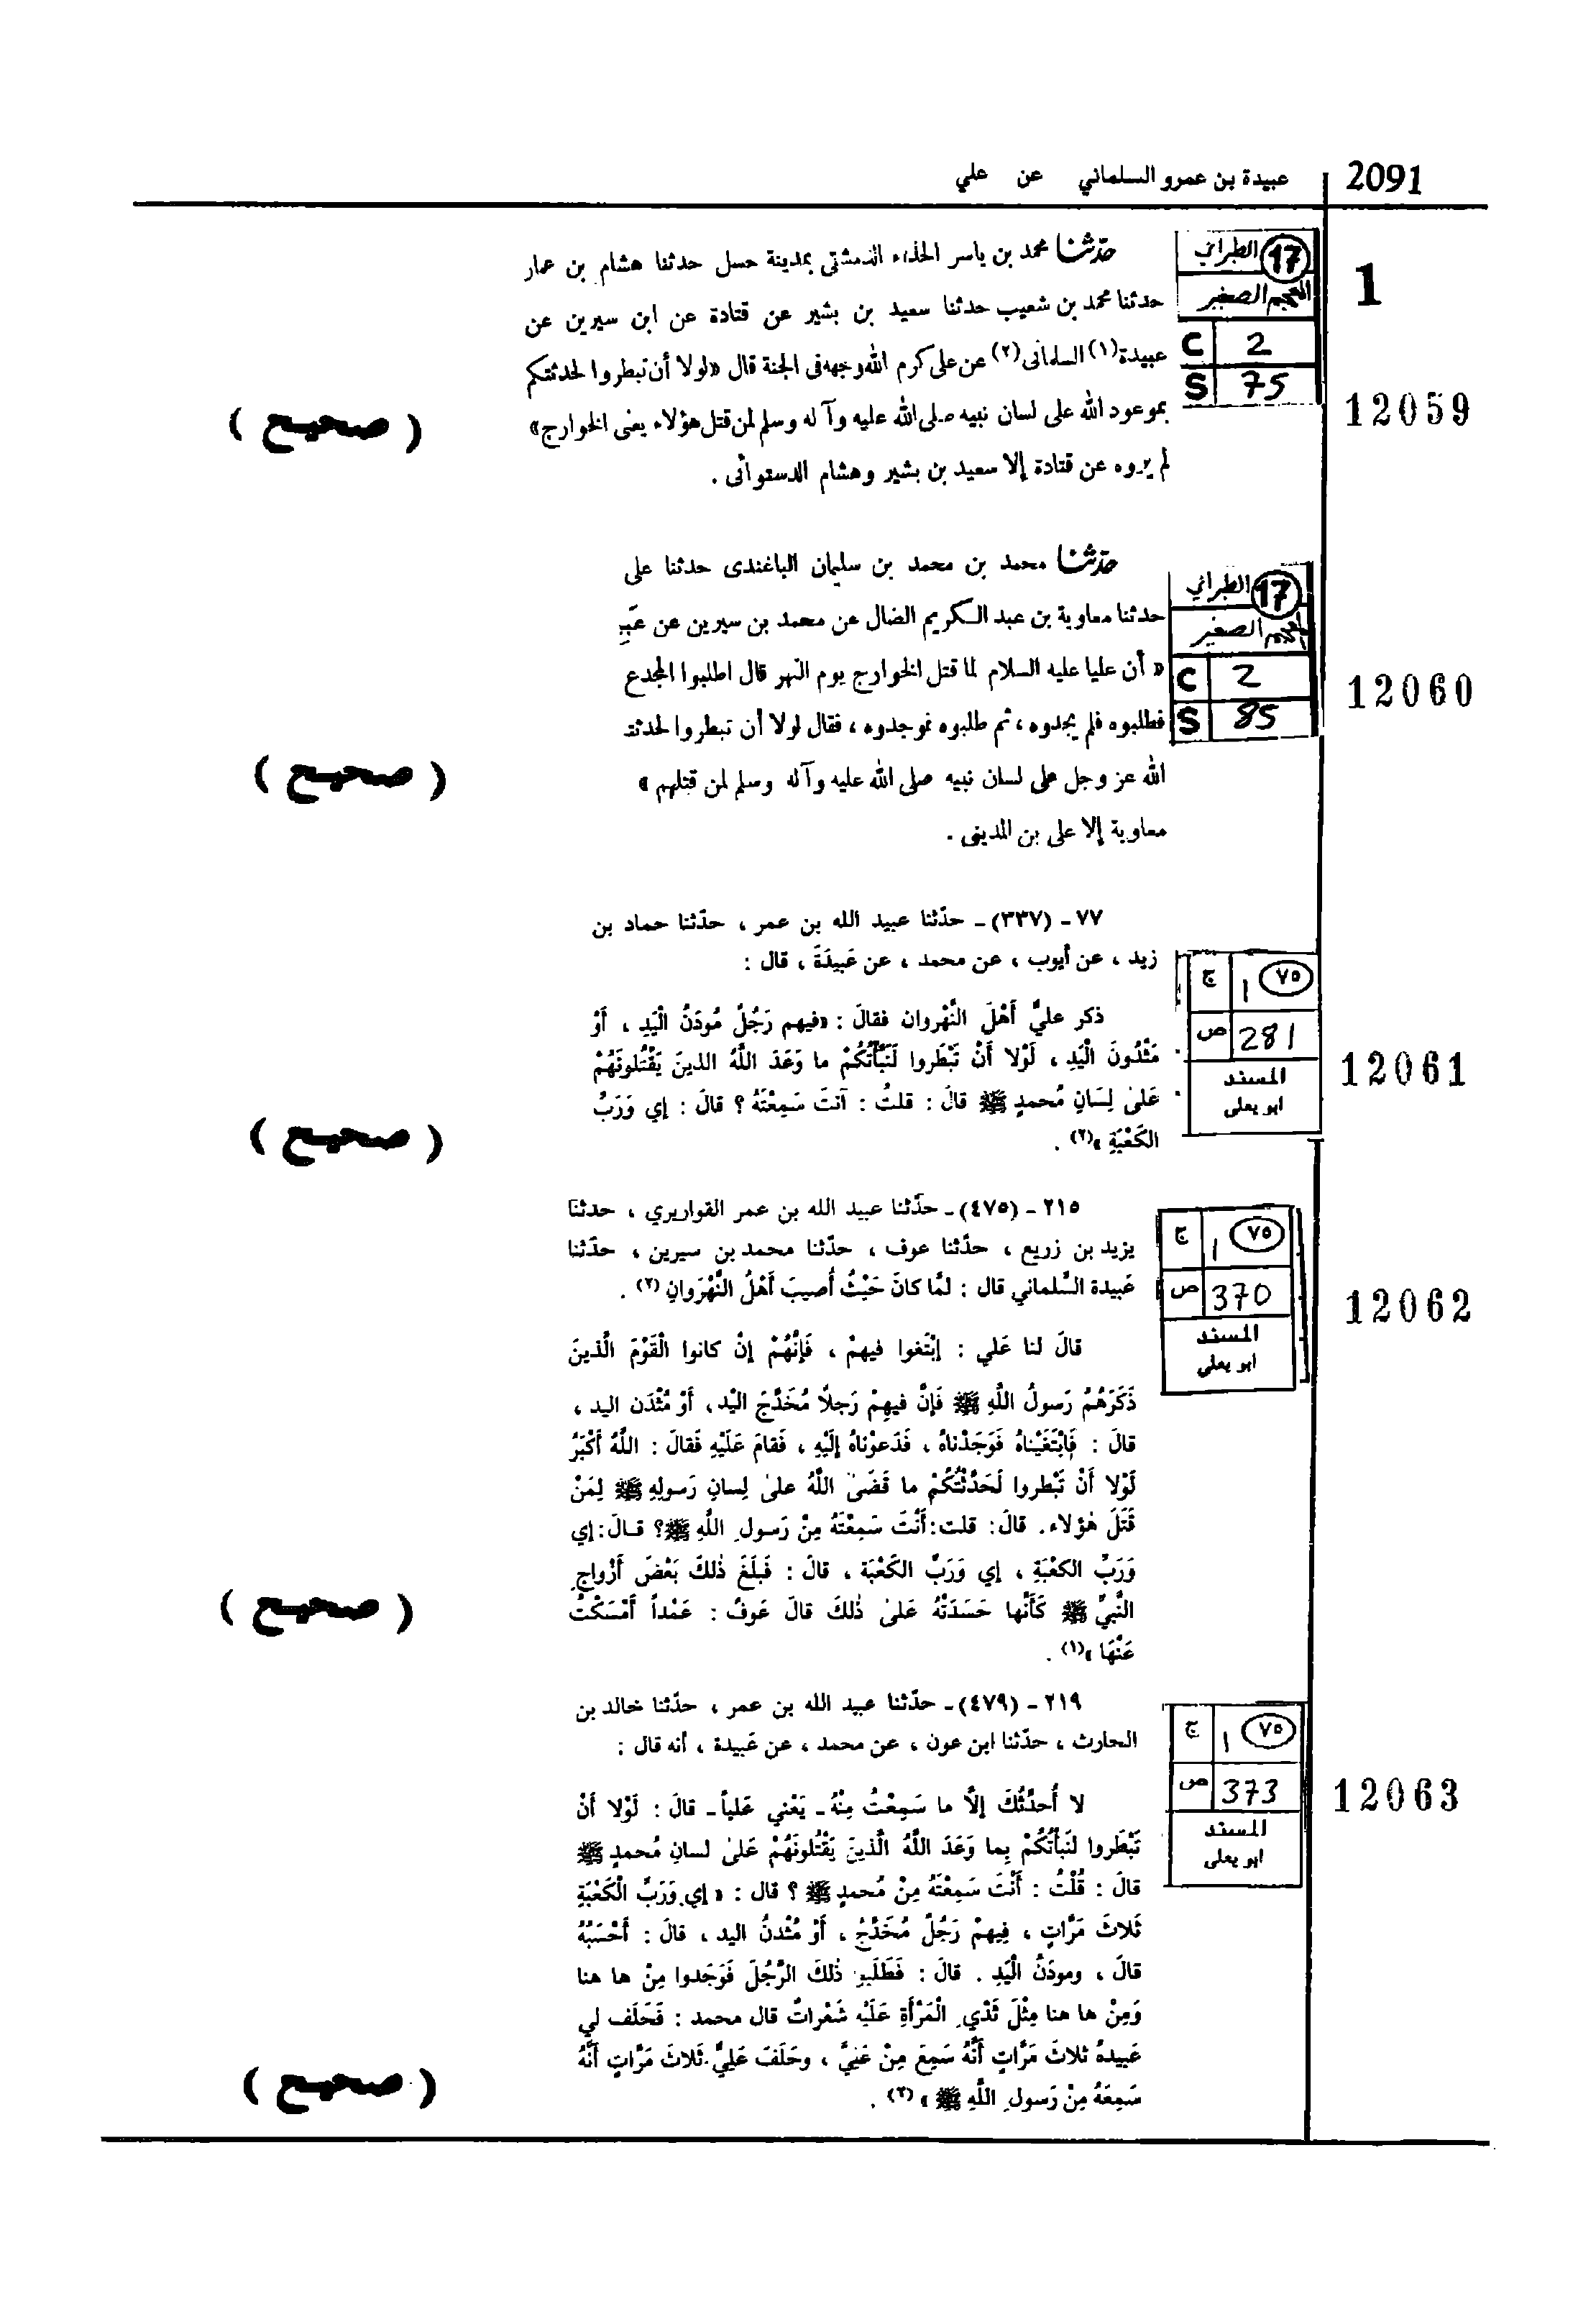 2091 عبيدة بن عمرو السلماني عن علي
1
17 الطبراني
المعجم الصغير
C 2
S 75
12059
حدثنا محمد بن ياسر الحذاء الدمشقى بمدينة جبيل حدثنا هشام بن عمار
حدثنا محمد بن شعيب حدثنا سعيد بن بشير عن قتادة عن ابن سيرين عن
عبيدة(١) السلمانى(٢) عن على كرم الله وجهه فى الجنة قال «لولا أن تبطروا لحدثتكم
بموعود الله على لسان نبيه صلى الله عليه وآله وسلم لمن قتل هؤلاء يعنى الخوارج»
لم يروه عن قتادة إلا سعيد بن بشير وهشام الدستوائى .
( صحيح )
17 الطبراني
المعجم الصغير
C 2
S 85
12060
حدثنا محمد بن محمد بن سليمان الباغندى حدثنا على
حدثنا معاوية بن عبد الكريم الضال عن محمد بن سيرين عن عبيـ
« أن عليا عليه السلام لما قتل الخوارج يوم النهر قال اطلبوا المجدع
فطلبوه فلم يجدوه ، ثم طلبوه فوجدوه ، فقال لولا أن تبطروا لحدثتـ
الله عز وجل على لسان نبيه صلى الله عليه وآله وسلم لمن قتلهم »
معاوية إلا على بن المدينى .
( صحيح )
٧٥ ١ ج
281 ص
المسند
ابو يعلى
12061
٧٧ - (٣٣٧) - حدّثنا عبيد الله بن عمر ، حدّثنا حماد بن
زيد ، عن أيوب ، عن محمد ، عن عَبيدَةَ ، قال :
ذكر عليٌّ أَهْلَ النَّهْروان فقالَ : «فيهم رَجُلٌ مُودَنُ الْيَدِ ، أَوْ
مَثْدُونَ الْيَدِ ، لَوْلا أَنْ تَبْطَروا لَنَبَّأْتُكُمْ ما وَعَدَ اللَّهُ الذينَ يَقْتُلونَهُمْ
عَلىٰ لِسَانِ مُحمدٍ ﷺ قالَ : قلتُ : آنتَ سَمِعْتَهُ ؟ قالَ : إي وَرَبِّ
الكَعْبَةِ »(٢) .
( صحيح )
٧٥ ١ ج
370 ص
المسند
ابو يعلى
12062
٢١٥ - (٤٧٥) - حدّثنا عبيد الله بن عمر القواريري ، حدثنا
يزيد بن زريع ، حدّثنا عوف ، حدّثنا محمد بن سيرين ، حدّثنا
عَبيدة السَّلماني قال : لمَّا كانَ حَيْثُ أُصيبَ أَهْلُ النَّهْرَوانِ (٢) .
قالَ لنا عَلي : إبْتَغوا فيهمْ ، فَإنَّهُمْ إنْ كانوا الْقَوْمَ الَّذينَ
ذَكَرَهُمْ رَسولُ اللَّهِ ﷺ فَإنَّ فيهِمْ رَجلًا مُخَدَّجَ اليْد ، أَوْ مُثْدَن اليد ،
قالَ : فَابْتَغَيْناهُ فَوَجَدْناهُ ، فَدَعوْناهُ إلَيْهِ ، فَقامَ عَلَيْهِ فَقالَ : اللَّهُ أَكْبَرُ
لَوْلا أَنْ تَبْطروا لَحَدَّثْتُكُمْ ما قَضَىٰ اللَّهُ علىٰ لِسانِ رَسولِهِ ﷺ لِمَنْ
قَتَلَ هٰؤلاء. قالَ: قلت: أَنْتَ سَمِعْتَهُ مِنْ رَسولِ اللَّهِ ﷺ؟ قـالَ: إي
وَرَبِّ الكعْبَةِ ، إي وَرَبِّ الكَعْبَة ، قالَ : فَبلَغَ ذٰلكَ بَعْضَ أَزْواجِ
النَّبيِّ ﷺ كَأَنَّها حَسَدَتْهُ عَلىٰ ذٰلكَ قالَ عَوفٌ : عَمْداً أَمْسَكْتُ
عَنْهَا »(١) .
( صحيح )
٧٥ ١ ج
373 ص
المسند
ابو يعلى
12063
٢١٩ - (٤٧٩) - حدّثنا عبيد الله بن عمر ، حدّثنا خالد بن
الحارث ، حدّثنا ابن عون ، عن محمد ، عن عَبيدة ، أنه قال :
لا أُحدّثُكَ إلَّا ما سَمِعْتُ مِنْهُ - يَعْني عَلياً - قالَ : لَوْلا أَنْ
تَبْطَروا لنَبَأْتُكُمْ بِما وَعَدَ اللَّهُ الَّذينَ يَقْتُلونَهُمْ عَلىٰ لسانِ مُحمدٍ ﷺ
قالَ : قُلْتُ : أَنْتَ سَمِعْتَهُ مِنْ مُحمدٍ ﷺ ؟ قال : « إي وَرَبِّ الْكَعْبَةِ
ثَلاثَ مَرَّاتٍ ، فِيهمْ رَجُلٌ مُخَدَّجُ ، أَوْ مُثْدنُ اليد ، قالَ : أَحْسَبُهُ
قالَ ، ومودَنُ الْيَدِ . قالَ : فَطَلَبوا ذٰلكَ الرَّجُلَ فَوَجَدوا مِنْ ها هنا
وَمِنْ ها هنا مِثْلَ ثَدْيِ الْمَرْأَةِ عَلَيْه شَعْراتٌ قال محمد : فَحَلَف لي
عَبيدةُ ثلاثَ مَرَّاتٍ أَنَّهُ سَمِعَ مِنْ عَليَّ ، وحَلَفَ عَليٌّ ثَلاثَ مَرَّاتٍ أَنَّهُ
سَمِعَهُ مِنْ رَسولِ اللَّهِ ﷺ » (٢) .
( صحيح )